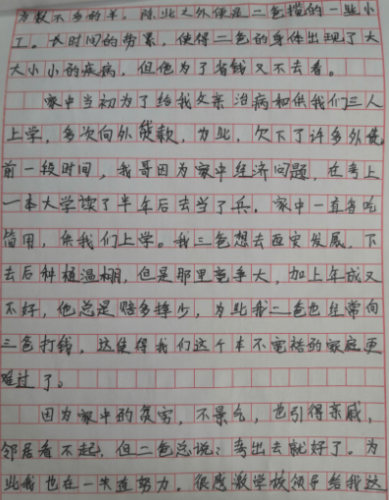 为数不多的羊。除此之外便是二爸揽的一些小
工。长时间的劳累，使得二爸的身体出现了大
大小小的疾病，但他为了省钱又不去看。
家中当初为了给我父亲治病和供我们三人
上学，多次向外贷款，为此，欠下了许多外债
前一段时间，我哥因为家中经济问题，在考上
一本大学读了半年后去当了兵，家中一直省吃
俭用，供我们上学。我三爸想去西安发展，下
去后种植温棚，但是那里竞争大，加上年成又
不好，他总是赔多挣少，为此我二爸也经常向
三爸打钱，这使得我们这个本不富裕的家庭更
难过了。
因为家中的贫穷，不景气，也引得亲戚，
邻居看不起，但二爸总说：考出去就好了。为
此我也在一直努力，很感激学校领导给我这